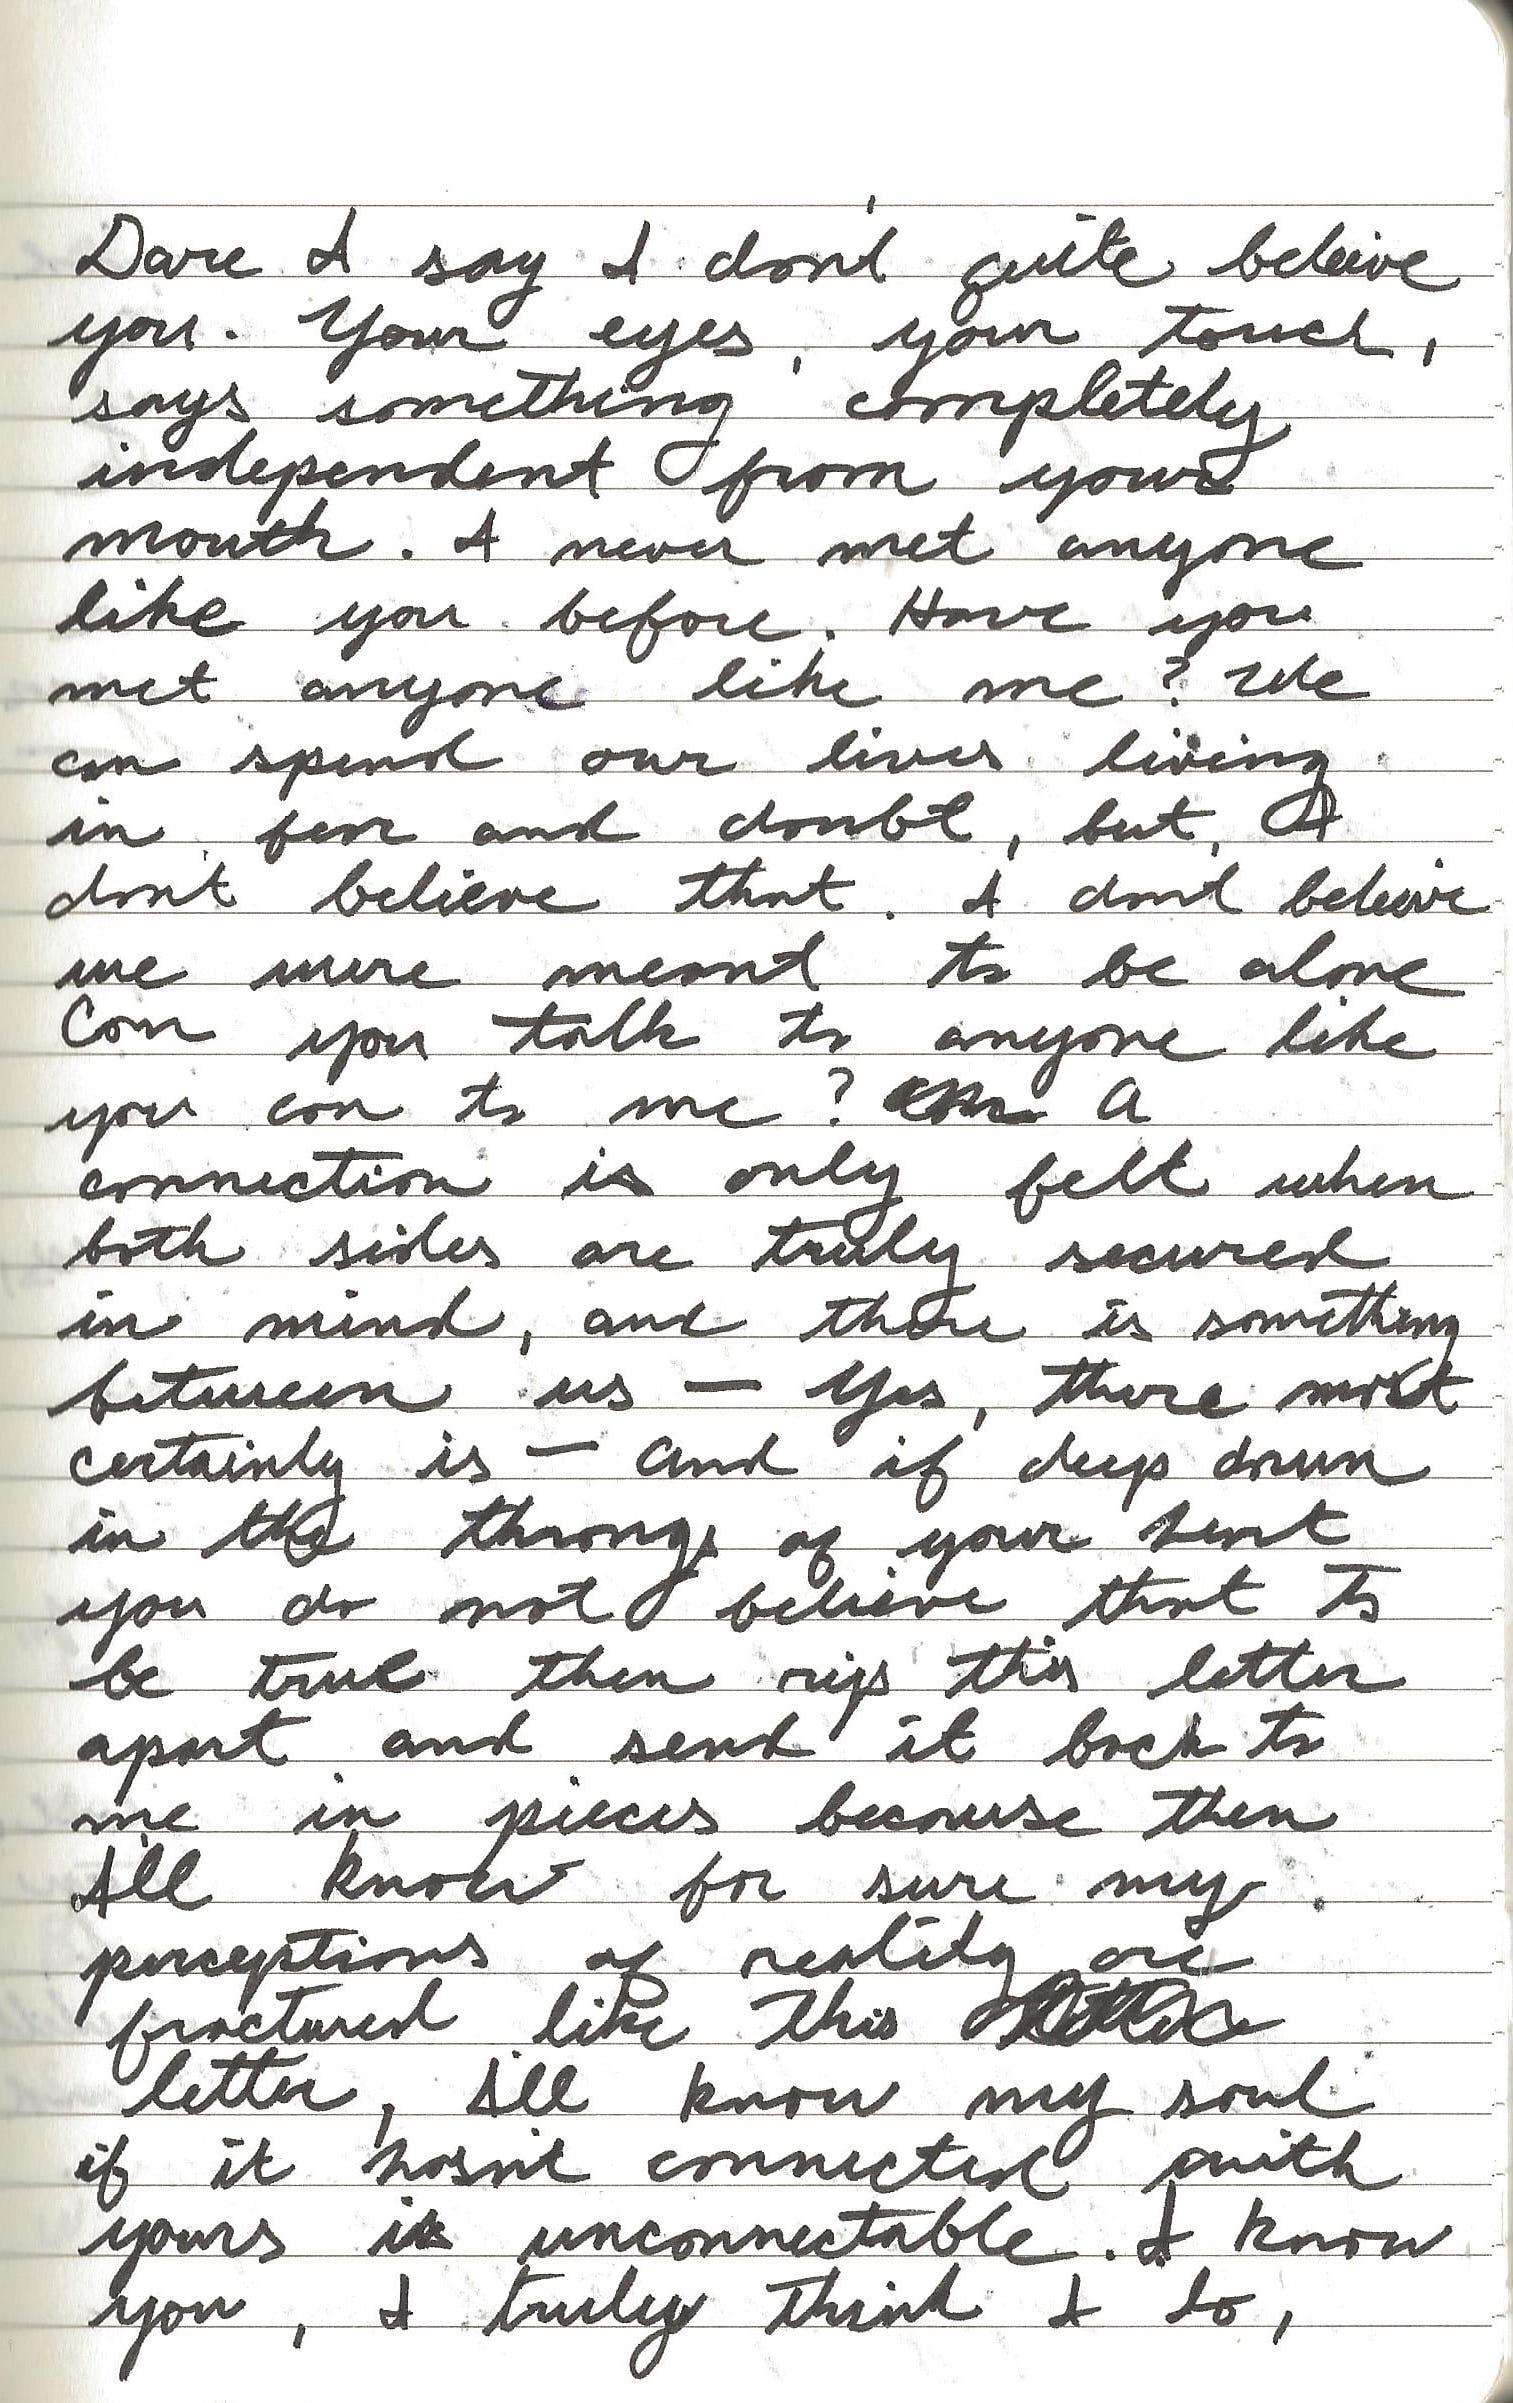 Dare I say I don't quite beleive
you. Your eyes, your touch,
says something completely
independent from your
mouth. I never met anyone
like you before. Have you
met anyone like me? We
can spend our lives living
in fear and doubt, but, I
don't believe that. I don't beleive
we were meant to be alone
Can you talk to anyone like
you can to me? A
connection is only felt when
both sides are truly secured
in mind, and there is something
between us — Yes, there most
certainly is — and if deep down
in the throngs of your heart
you do not believe that to
be true then rip this letter
apart and send it back to
me in pieces because then
I'll know for sure my
perceptions of reality are
fractured like this
letter, I'll know my soul
if it hasn't connected with
yours is unconnectable. I know
you, I truly think I do,